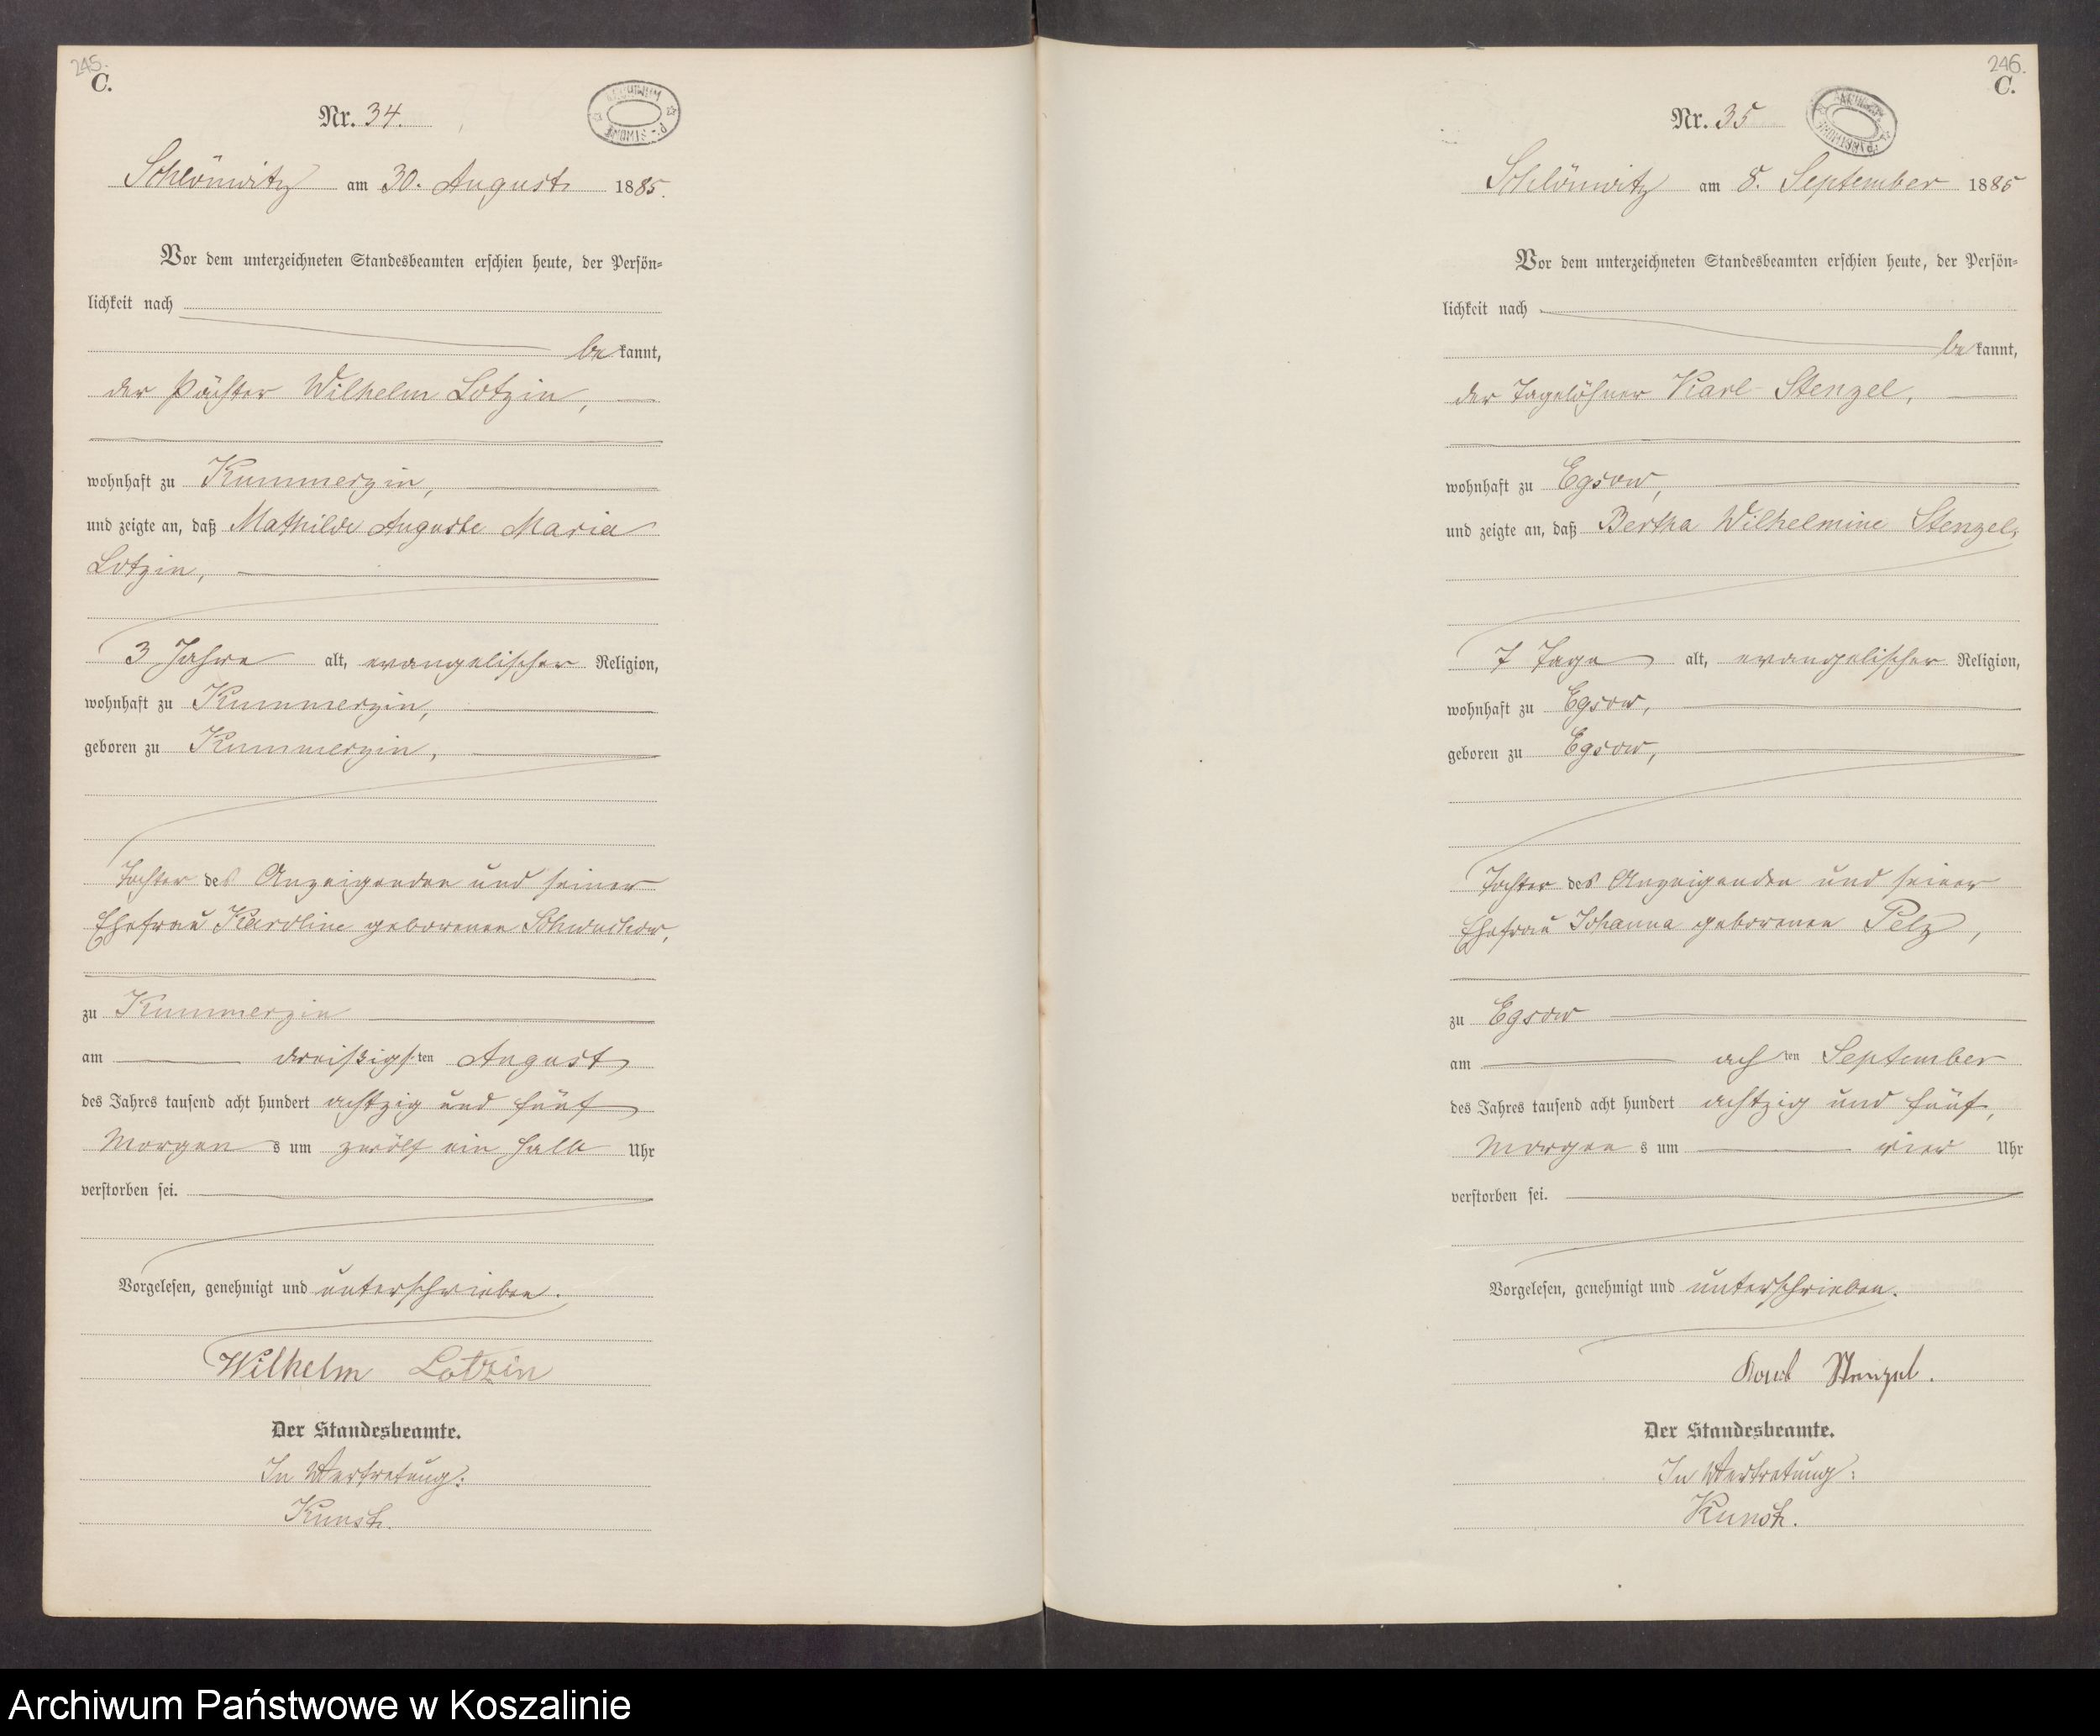 245.
C.
Nr. 34.
ARCHIWUM
Schlönwitz am 30. August 1885.
Vor dem unterzeichneten Standesbeamten erschien heute, der Persön-
lichkeit nach
bekannt,
der Pächter Wilhelm Lotzin,
wohnhaft zu Kummerzin,
und zeigte an, daß Mathilde Auguste Maria
Lotzin,
3 Jahre alt, evangelischer Religion,
wohnhaft zu Kummerzin,
geboren zu Kummerzin,
Tochter des Anzeigenden und seiner
Ehefrau Karoline geborenen
zu Kummerzin
am dreißigsten August
des Jahres tausend acht hundert achtzig und fünf
Morgens um zwölf ein halb Uhr
verstorben sei.
Vorgelesen, genehmigt und unterschrieben.
Wilhelm Lotzin
Der Standesbeamte.
In Vertretung:
246.
C.
Nr. 35
Schlönwitz am 8. September 1885
Vor dem unterzeichneten Standesbeamten erschien heute, der Persön-
lichkeit nach
bekannt,
der Tagelöhner Karl Stenzel,
wohnhaft zu Egsow,
und zeigte an, daß Bertha Wilhelmine Stenzel,
7 Tage alt, evangelischer Religion,
wohnhaft zu Egsow,
geboren zu Egsow,
Tochter des Anzeigenden und seiner
Ehefrau Johanna geborenen Pelz,
zu Egsow
am achten September
des Jahres tausend acht hundert achtzig und fünf,
Morgens um vier Uhr
verstorben sei.
Vorgelesen, genehmigt und unterschrieben.
Karl Stenzel.
Der Standesbeamte.
In Vertretung:
Archiwum Państwowe w Koszalinie